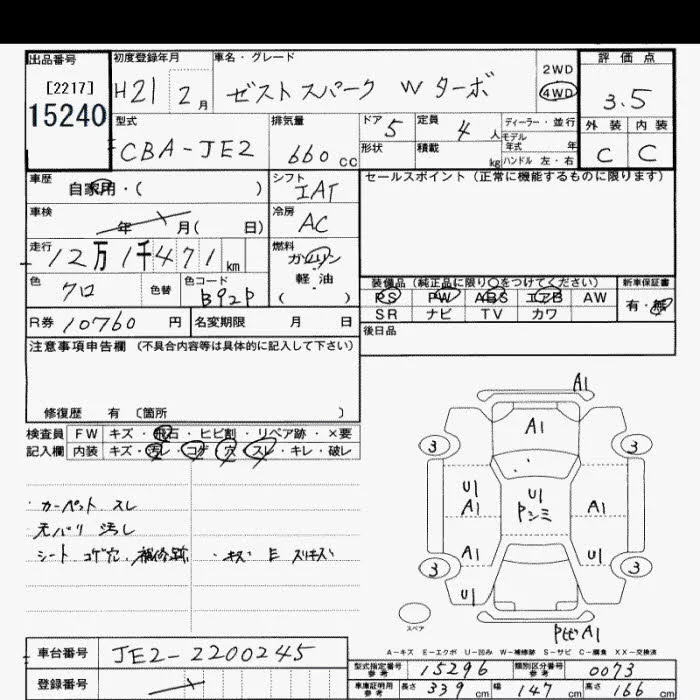 出品番号 初度登録年月 車名・グレード 評価点
[2217] H21 2月 ゼストスパーク W ターボ 2WD 4WD 3.5
15240
型式 排気量 ドア 定員 ディーラー・並行 外装 内装
CBA-JE2 660cc 5 4人 モデル年式 年 C C
形状 積載 kg ハンドル 左・右
車歴 自家用・( ) シフト IAT セールスポイント(正常に機能するものに限ります)
車検 年 月( 日) 冷房 AC
走行 12万1千471km 燃料 ガソリン
軽油
( )
色 クロ 色替 色コード B92P
装備品(純正品に限り○をつけてください) 新車保証書
PS PW ABS エアB AW 有・無
SR ナビ TV カワ
R券 10760円 名変期限 月 日
後日品
注意事項申告欄 (不具合内容等は具体的に記入して下さい)
修復歴 有 〔箇所 〕
検査員 FW キズ・飛石・ヒビ割・リペア跡・×要
記入欄 内装 キズ・汚レ・コゲ・穴・スレ・キレ・破レ
・カーペット スレ
天バリ 汚し
シート コゲ穴、補修跡 ・キズ E スリキズ
A1
A1
3 3
U1 U1
A1 Pシミ A1
A1 U1
3 3
U1
スペア A1
A-キズ E-エクボ U-凹み W-補修跡 S-サビ C-腐食 XX-交換済
車台番号 JE2-2200245
登録番号
型式指定番号 参考 15296 類別区分番号 参考 0073
車庫証明用 参考 長さ 339cm 幅 147cm 高さ 166cm